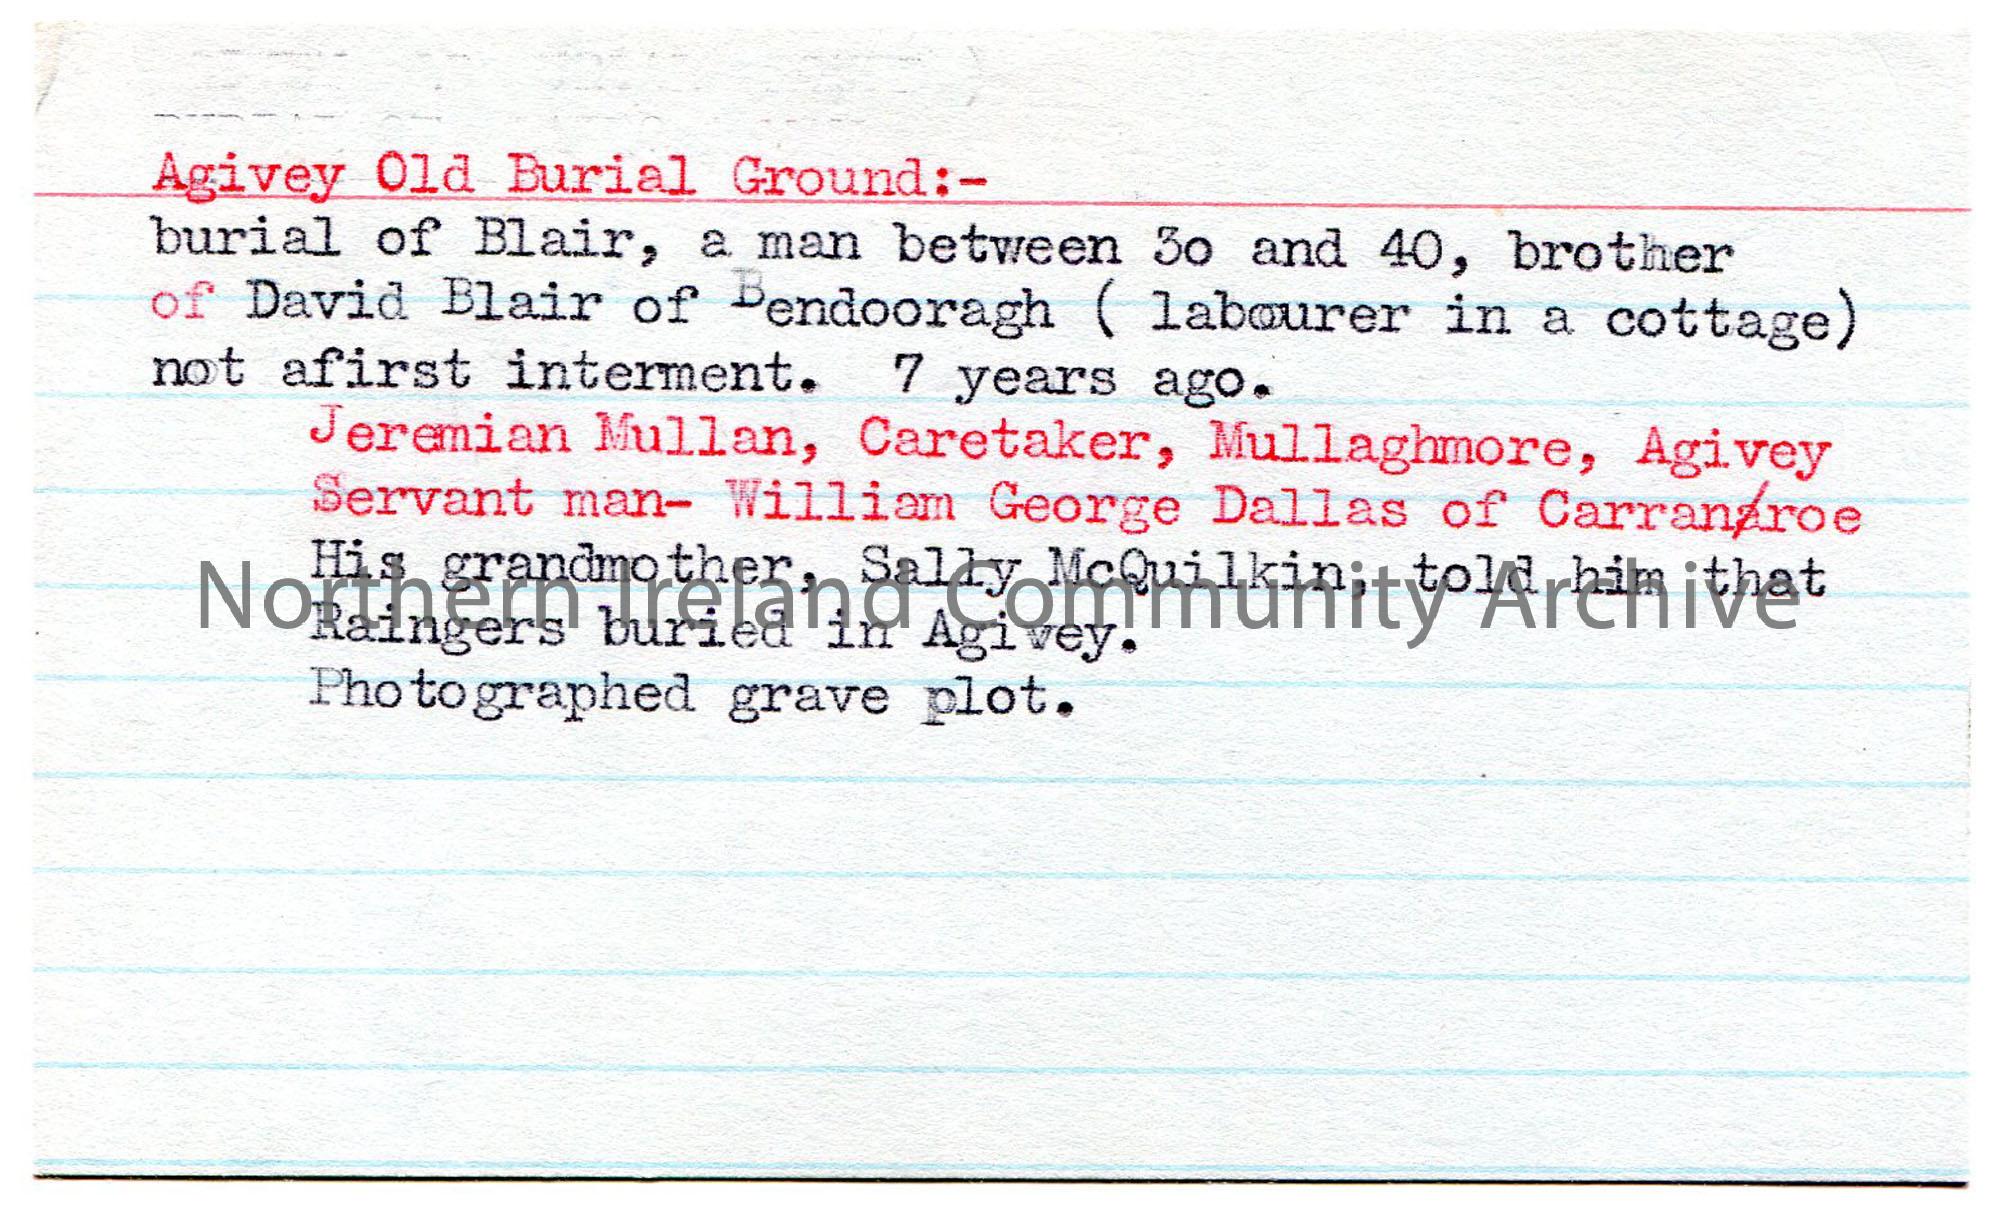 Agivey Old Burial Ground:-
burial of Blair, a man between 3o and 40, brother
of David Blair of Bendooragh ( labourer in a cottage)
not afirst interment. 7 years ago.
Jeremian Mullan, Caretaker, Mullaghmore, Agivey
Servant man- William George Dallas of Carranaroe
His grandmother, Sally McQuilkin, told him that
Northern Ireland Community Archive
Raingers buried in Agivey.
Photographed grave plot.